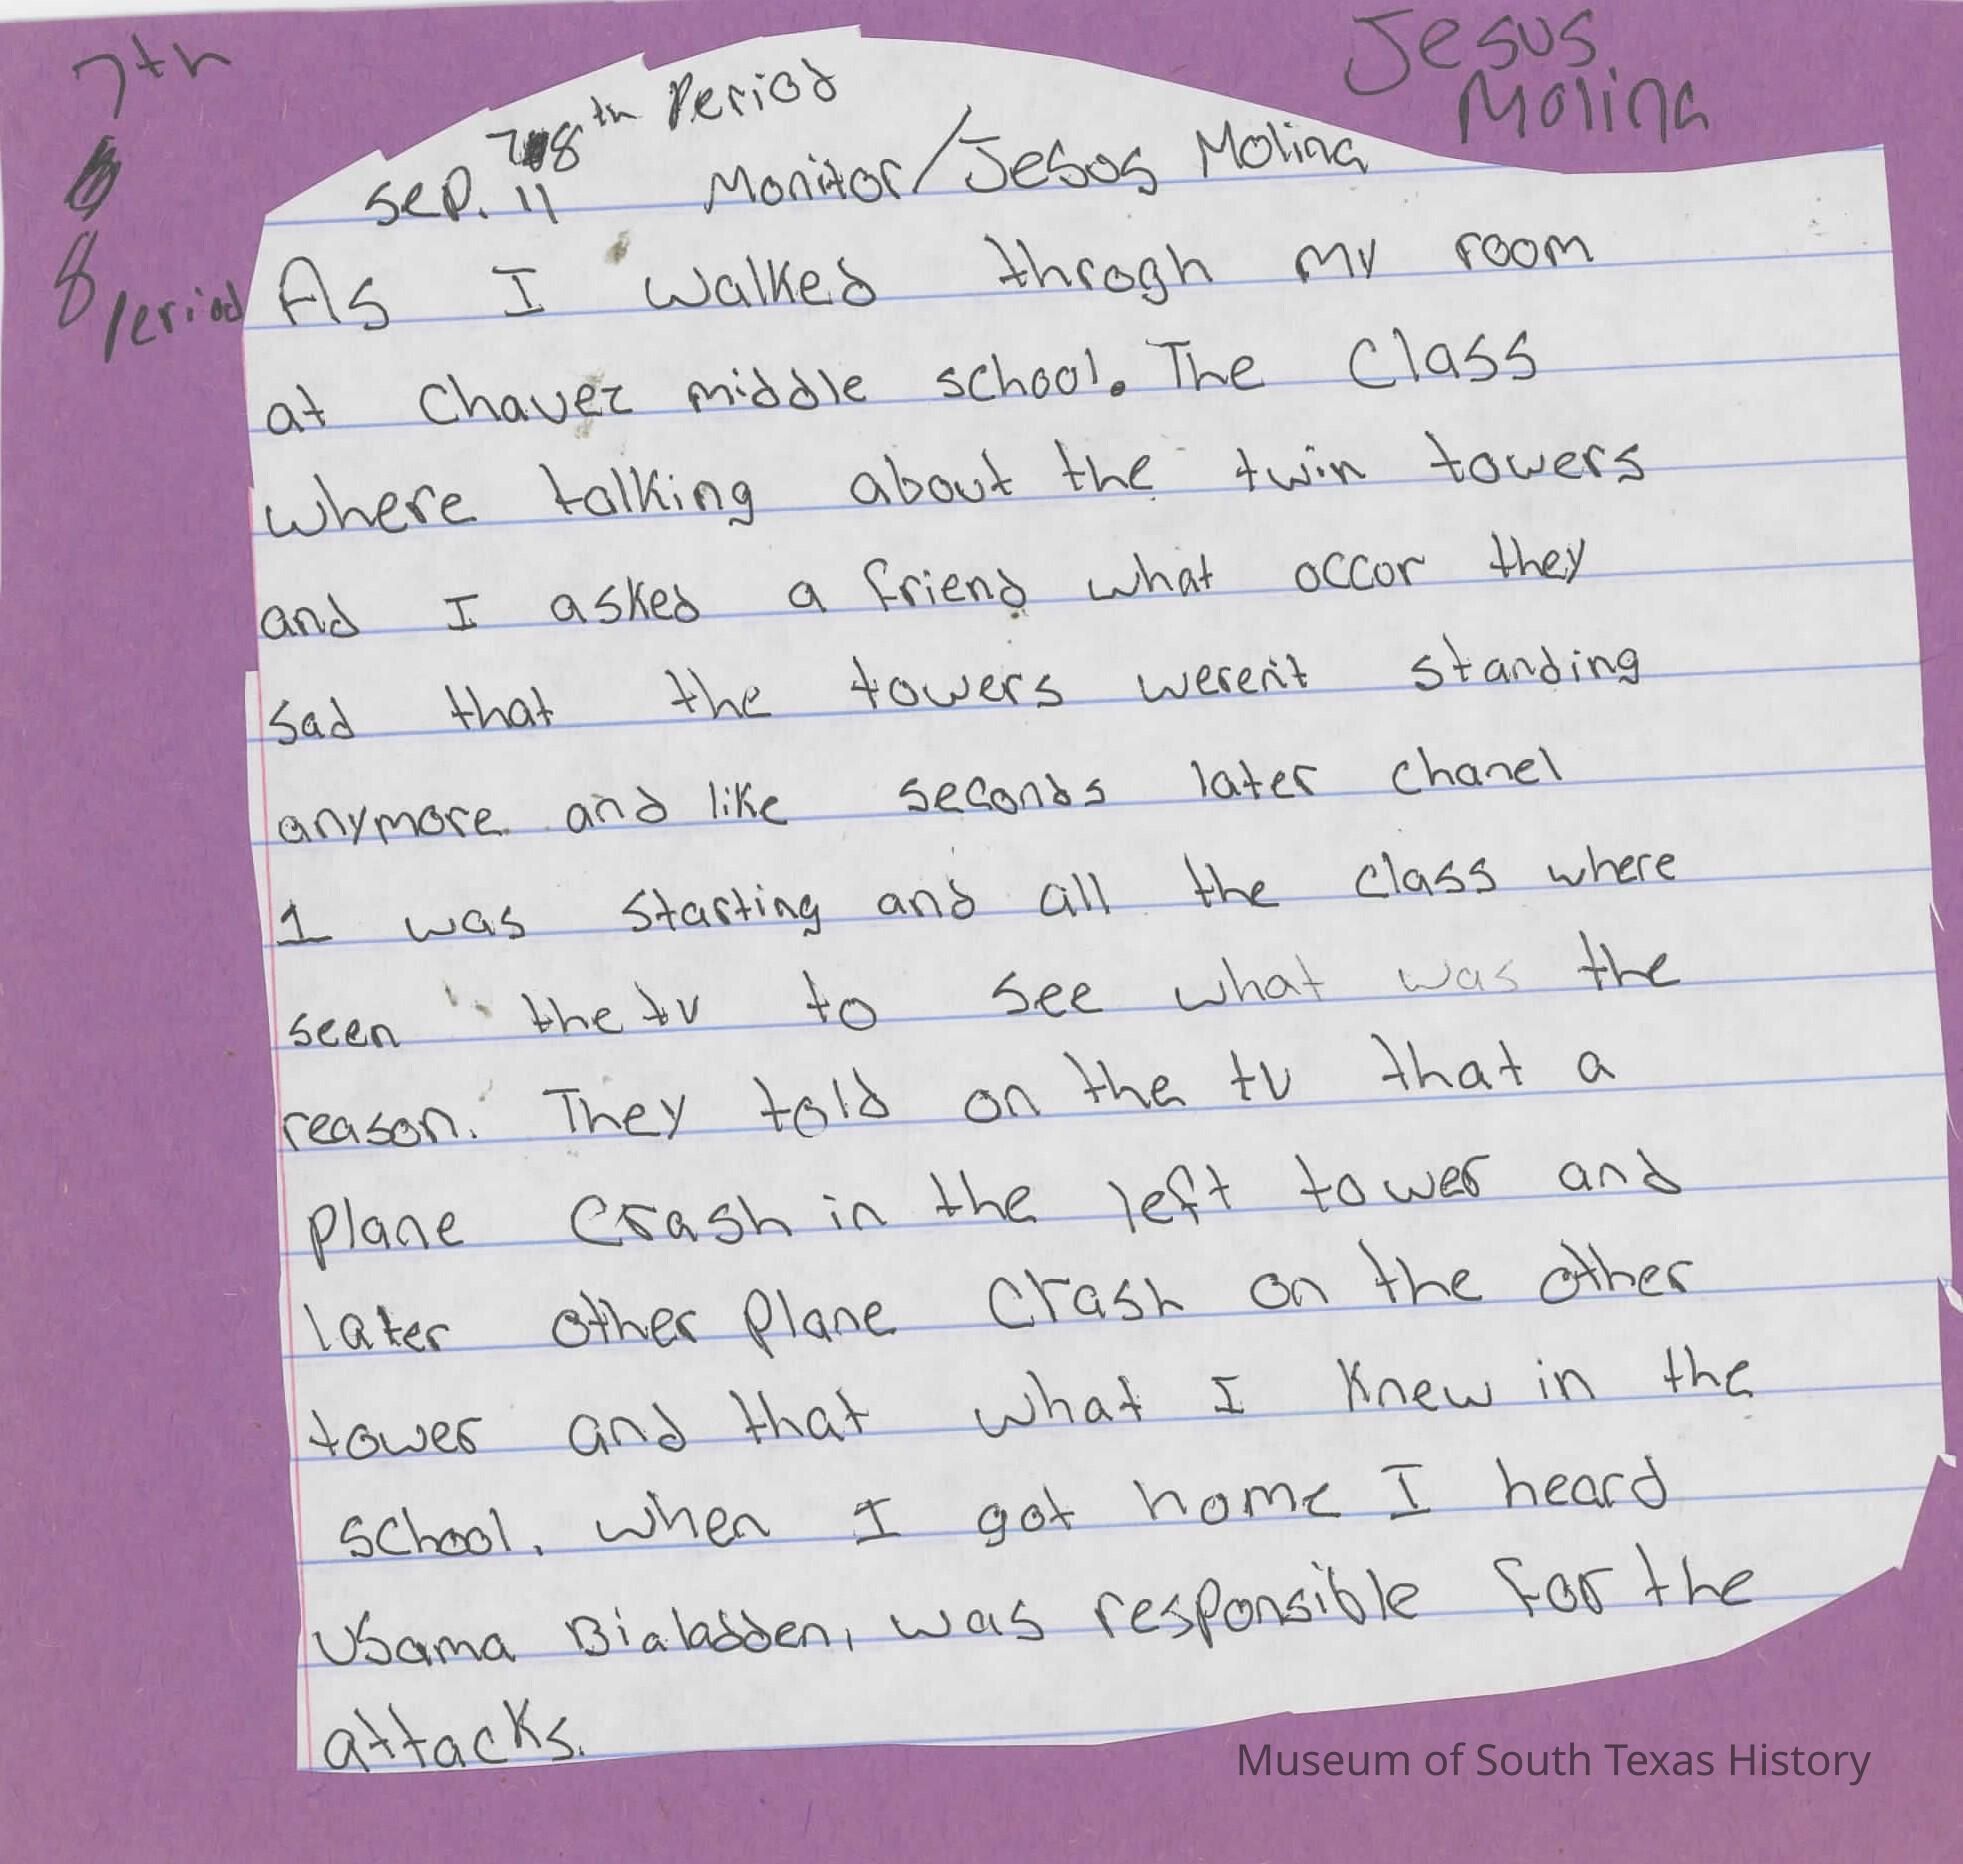 7th
8
Period
Jesus
Molina
7 8th Period
Sep. 11 Monitor/Jesus Molina
As I walked throgh my room
at Chavez middle school. The Class
where talking about the twin towers
and I asked a friend what occor they
sad that the towers weren't standing
anymore and like seconds later chanel
1 was starting and all the class where
seen the tv to see what was the
reason. They told on the tv that a
plane crash in the left tower and
later other plane crash on the other
tower and that what I knew in the
school. when I got home I heard
Usama Bialadden, was responsible for the
attacks.
Museum of South Texas History